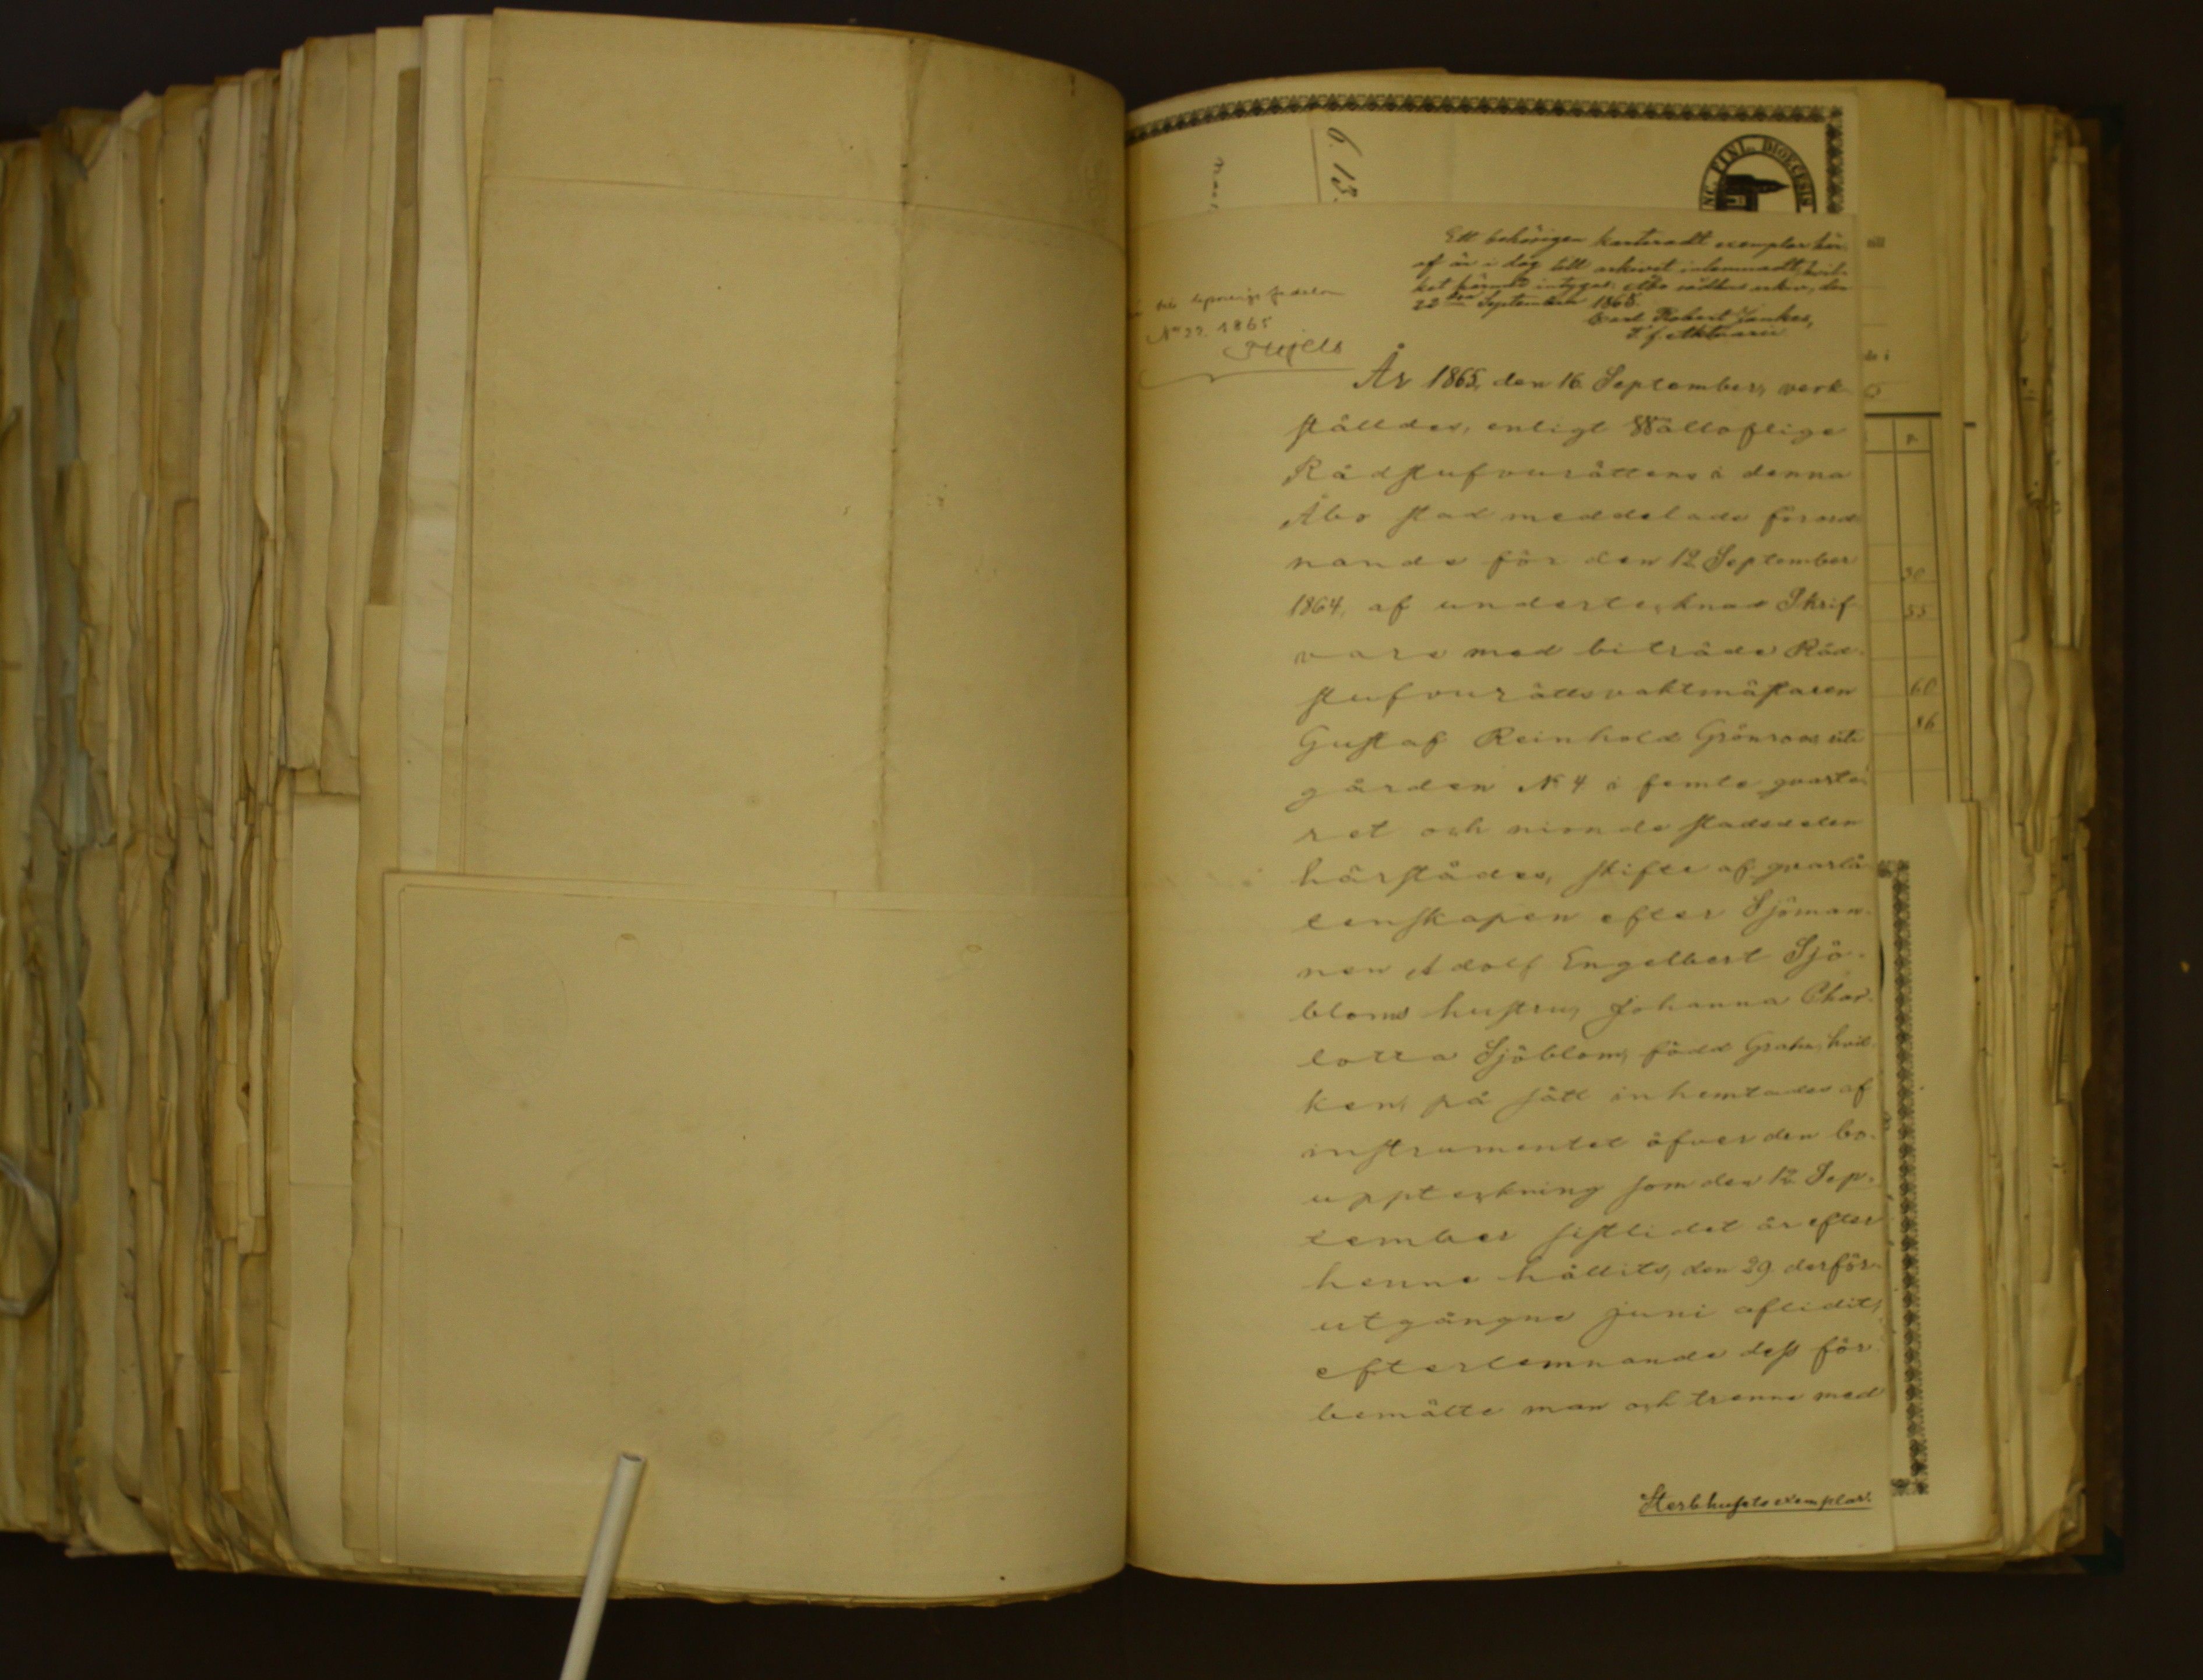 6. 13.
NC. FINL. DIOECESIS
Ett behörigen karteradt exemplar här-
af är i dag till arkivet inlemnadt, hvil-
ket härmed intygas. Åbo rådhus arkiv, den
22dra September 1865.
Carl Robert Jankes,
T. f. Aktuarie
No 22. 1865
År 1865, den 16 September, verk-
ställdes, enligt Wälloflige
Rådstufvurättens i denna
Åbo stad meddelade förord-
nande för den 12 September
1864, af undertecknad Skrif-
vare med biträde Råd-
stufvurättsvaktmästaren
Gustaf Reinhold Grönroos uti
gården No 4 i femte qvarte-
ret och nionde stadsdelen
härstädes, skifte af qvarlå-
tenskapen efter Sjöman-
nen Adolf Engelbert Sjö-
bloms hustru, Johanna Char-
lotta Sjöblom, född Grahn, hvil-
ken, på sätt inhemtades af
instrumentet öfver den bo-
uppteckning som den 12 Sep-
tember sistlidet år efter
henne hållits, den 29 derför-
utgångne Juni aflidit,
efterlemnande dess för-
bemälte man och trenne med
Sterbhusets exemplar.
30
55
60
86